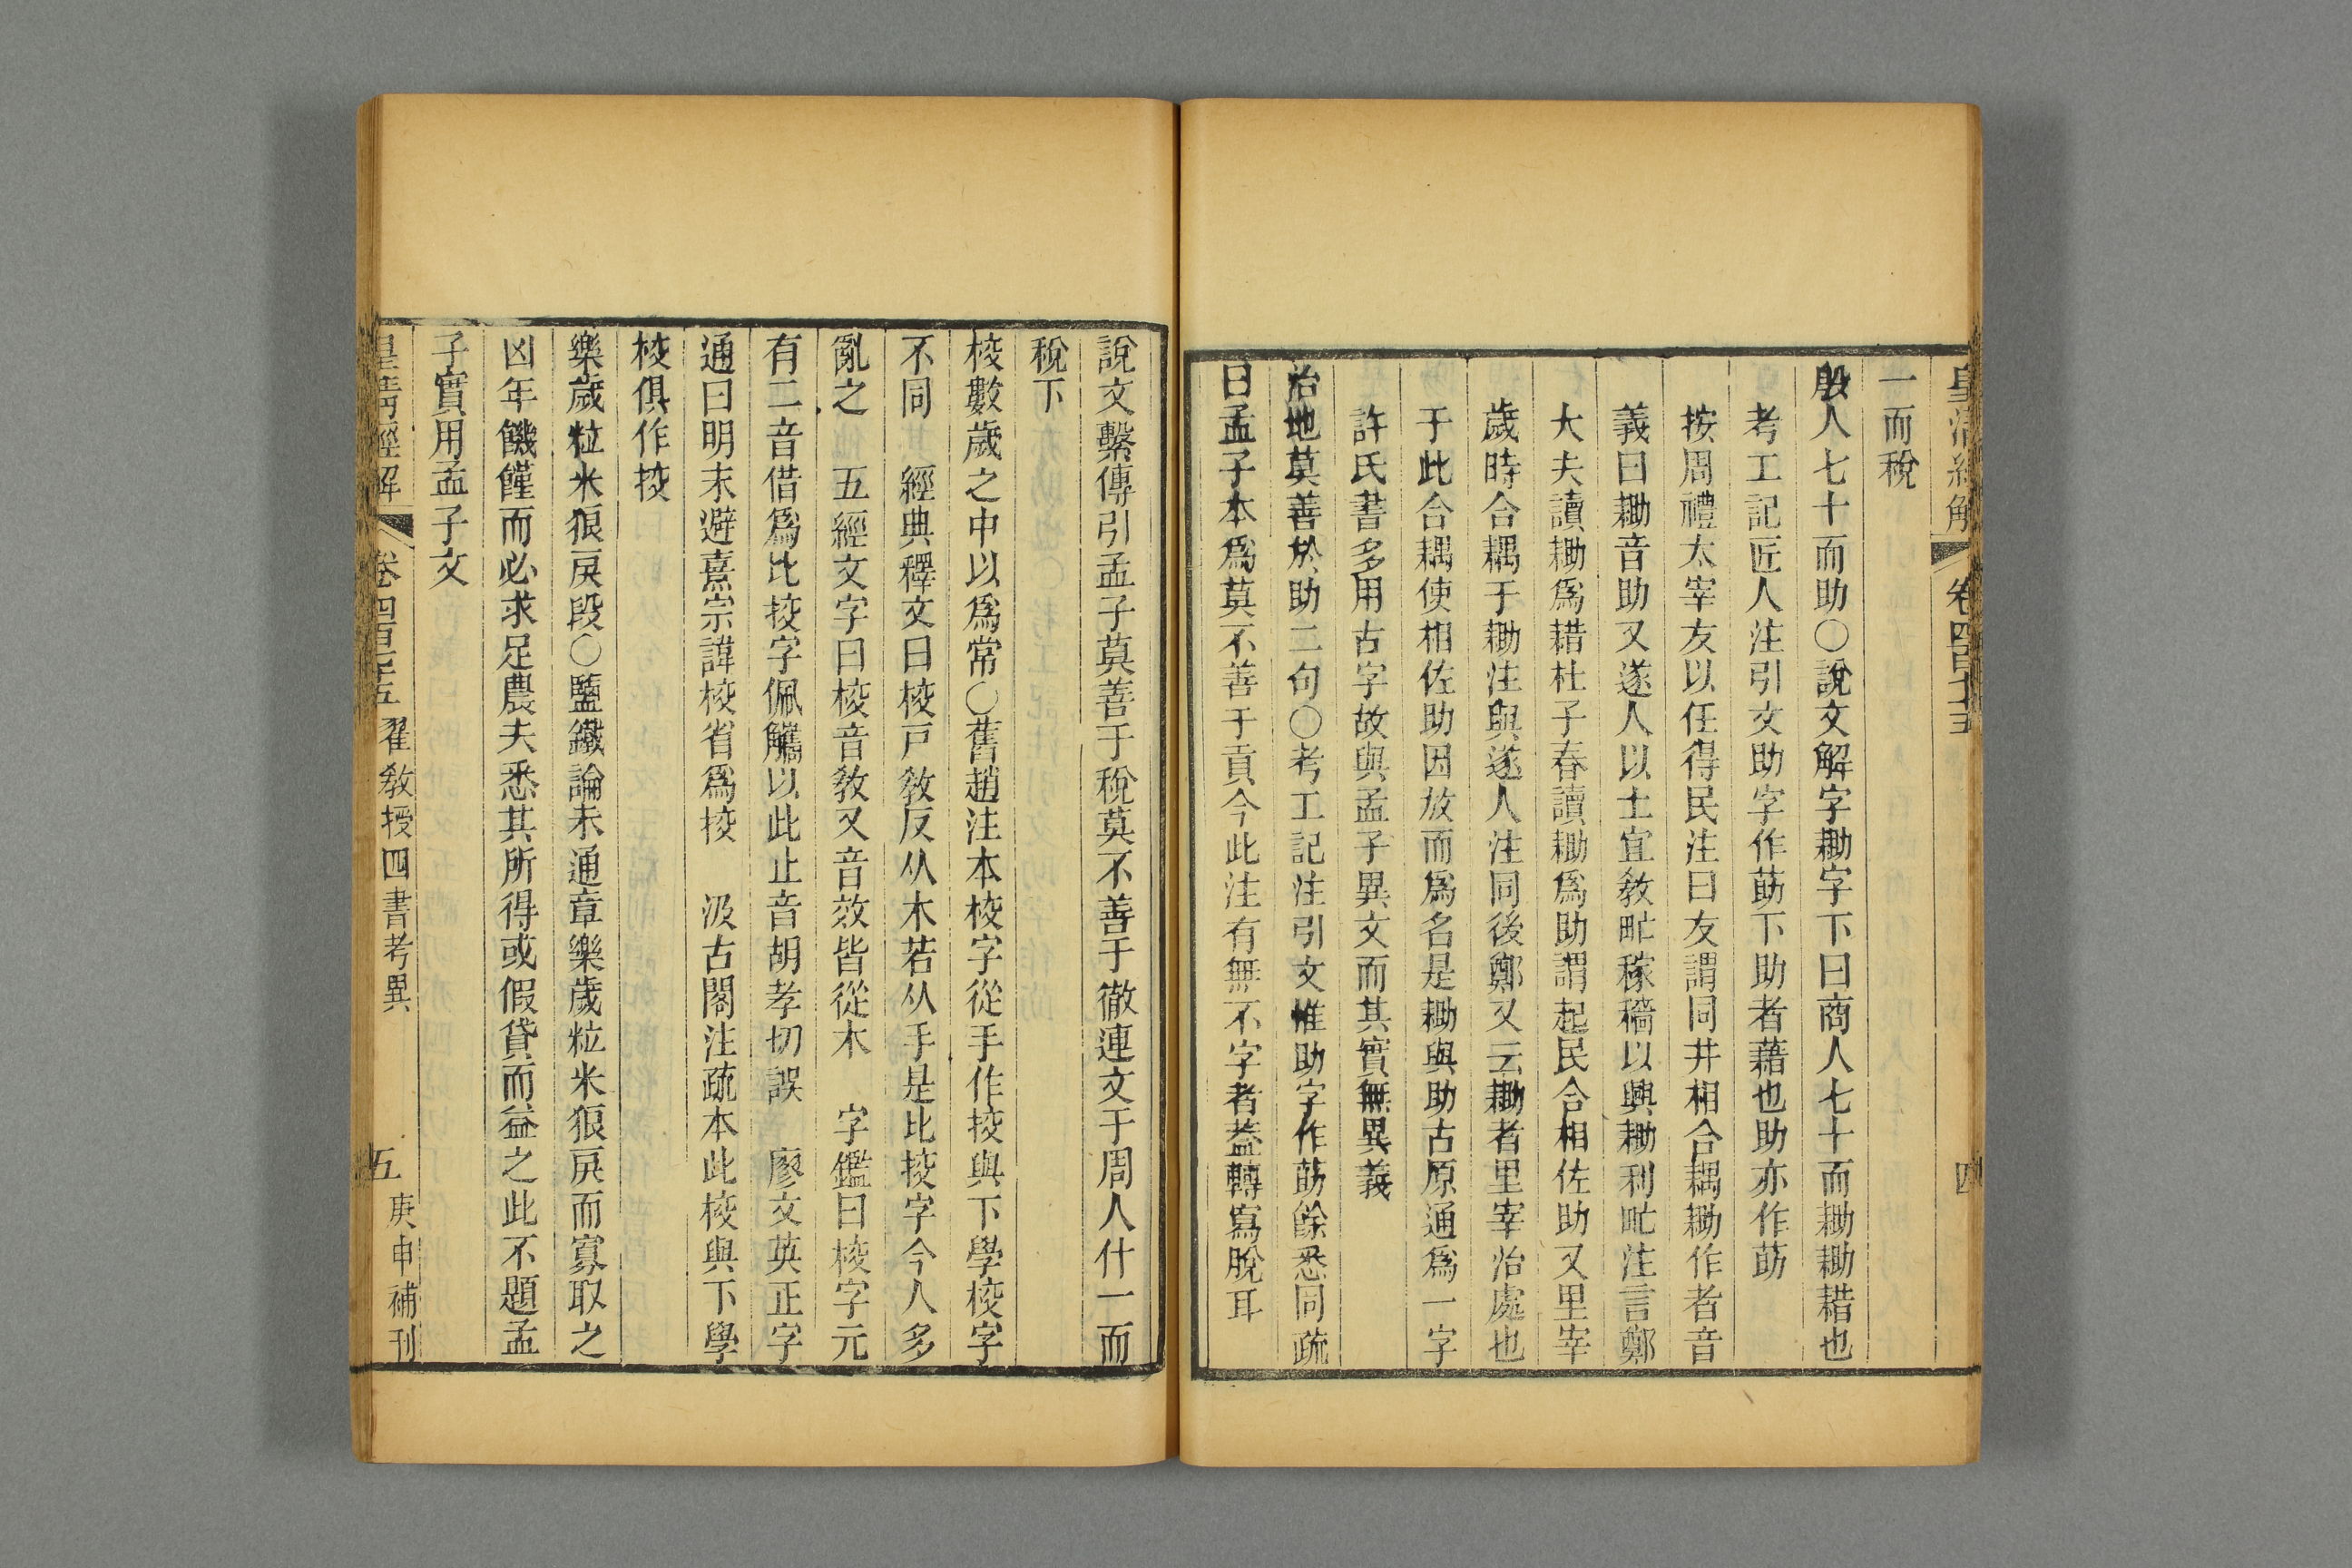 皇清經解 卷四百七十五 四
一而稅
殷人七十而助○說文解字耡字下曰商人七十而耡耡耤也
考工記匠人注引文助字作莇下助者藉也助亦作莇
按周禮太宰友以任得民注曰友謂同井相合耦耡作者音
義曰耡音助又遂人以土宜敎甿稼穡以興耡利甿注言鄭
大夫讀耡爲耤杜子春讀耡爲助謂起民合相佐助又里宰
歲時合耦于耡注與遂人注同後鄭又云耡者里宰治處也
于此合耦使相佐助因放而爲名是耡與助古原通爲一字
許氏書多用古字故與孟子異文而其實無異義
治地莫善於助二句○考工記注引文惟助字作莇餘悉同疏
曰孟子本爲莫不善于貢今此注有無不字者蓋轉寫脫耳
說文繫傳引孟子莫善于稅莫不善于徹連文于周人什一而
稅下
校數歲之中以爲常○舊趙注本校字從手作挍與下學校字
不同 經典釋文曰校戸敎反从木若从手是比挍字今人多
亂之 五經文字曰校音敎又音效皆從木 字鑑曰校字元
有二音借爲比挍字佩觿以此止音胡孝切誤 廖文英正字
通曰明末避熹宗諱校省爲挍 汲古閣注疏本此校與下學
校俱作挍
樂歲粒米狼戾段○鹽鐵論未通章樂歲粒米狼戾而寡取之
凶年饑饉而必求足農夫悉其所得或假貸而益之此不題孟
子實用孟子文
皇淸經解 卷四百七十五 翟敎授四書考異 五 庚申補刊